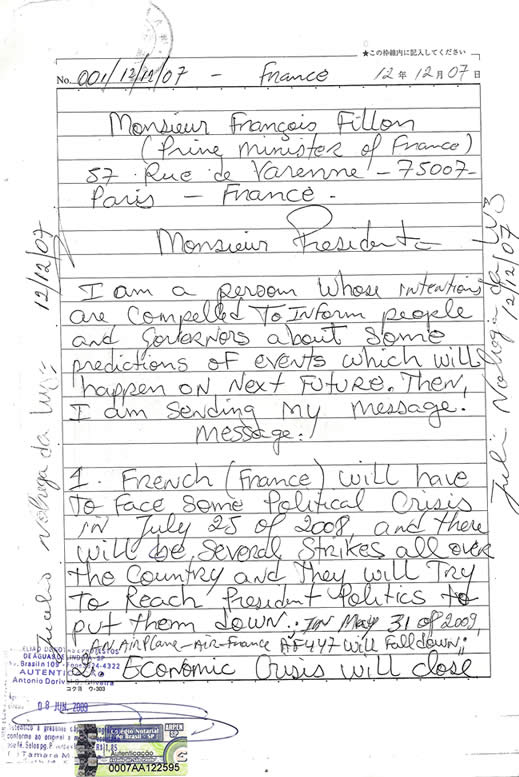 ★この枠線内に記入してください
No. 001/12/12/07 - France 12年 12月 07日
Monsieur François Fillon
(Prine Minister of France)
57 Rue de Varenne - 75007-
Paris - France -
Monsieur President
I am a person whose intentions
are compelled To Inform people
and Governors about some
predictions of events which will
happen on Next Future. Then,
I am Sending My Message.
Message:
1. French (France) will have
To Face Some Political Crisis
in July 25 of 2008 and there
will be several Strikes all over
the Country and They will Try
To Reach President Politics to
put them down. IN May 31 of 2009,
AN AIRPLANE-AIR-FRANCE AF447 will Fall down;
2. Economic Crisis will close
12/12/07
da Luz
12/12/07
DE AGUAS DE LINDOIA-SP
Brasil n 109 - Fone 3824-4322
AUTENTIC
Antonio Dorival
コクヨ ケ-303
08 JUN. 2009
conforme ao original a mim
R$ 1,85
Colégio Notarial
do Brasil - SP
ARPEN
SP
Autenticação
0007AA122595